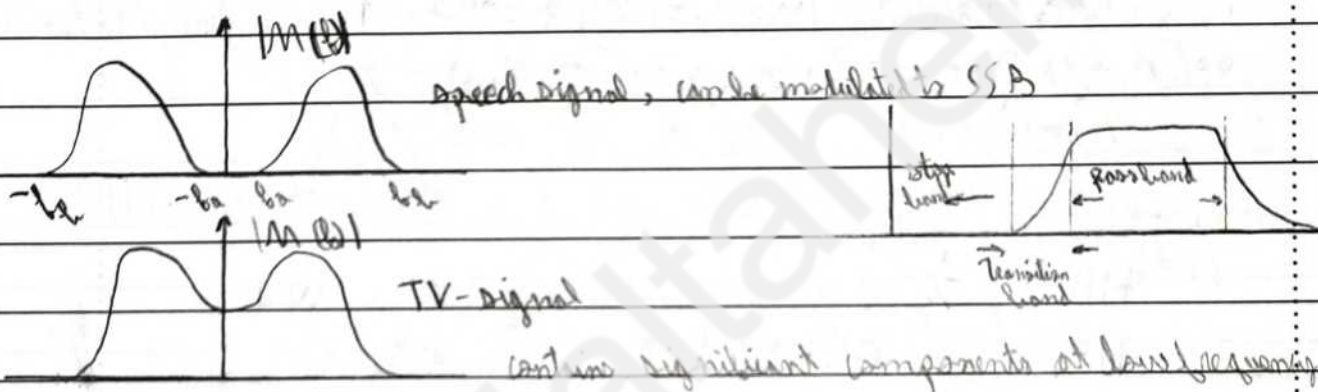 |M(f)|
speech signal, can be modulated to SSB
stop band
passband
-fb -fa fa fb
|M(f)|
Transition band
TV-signal
contains significant components at low frequency